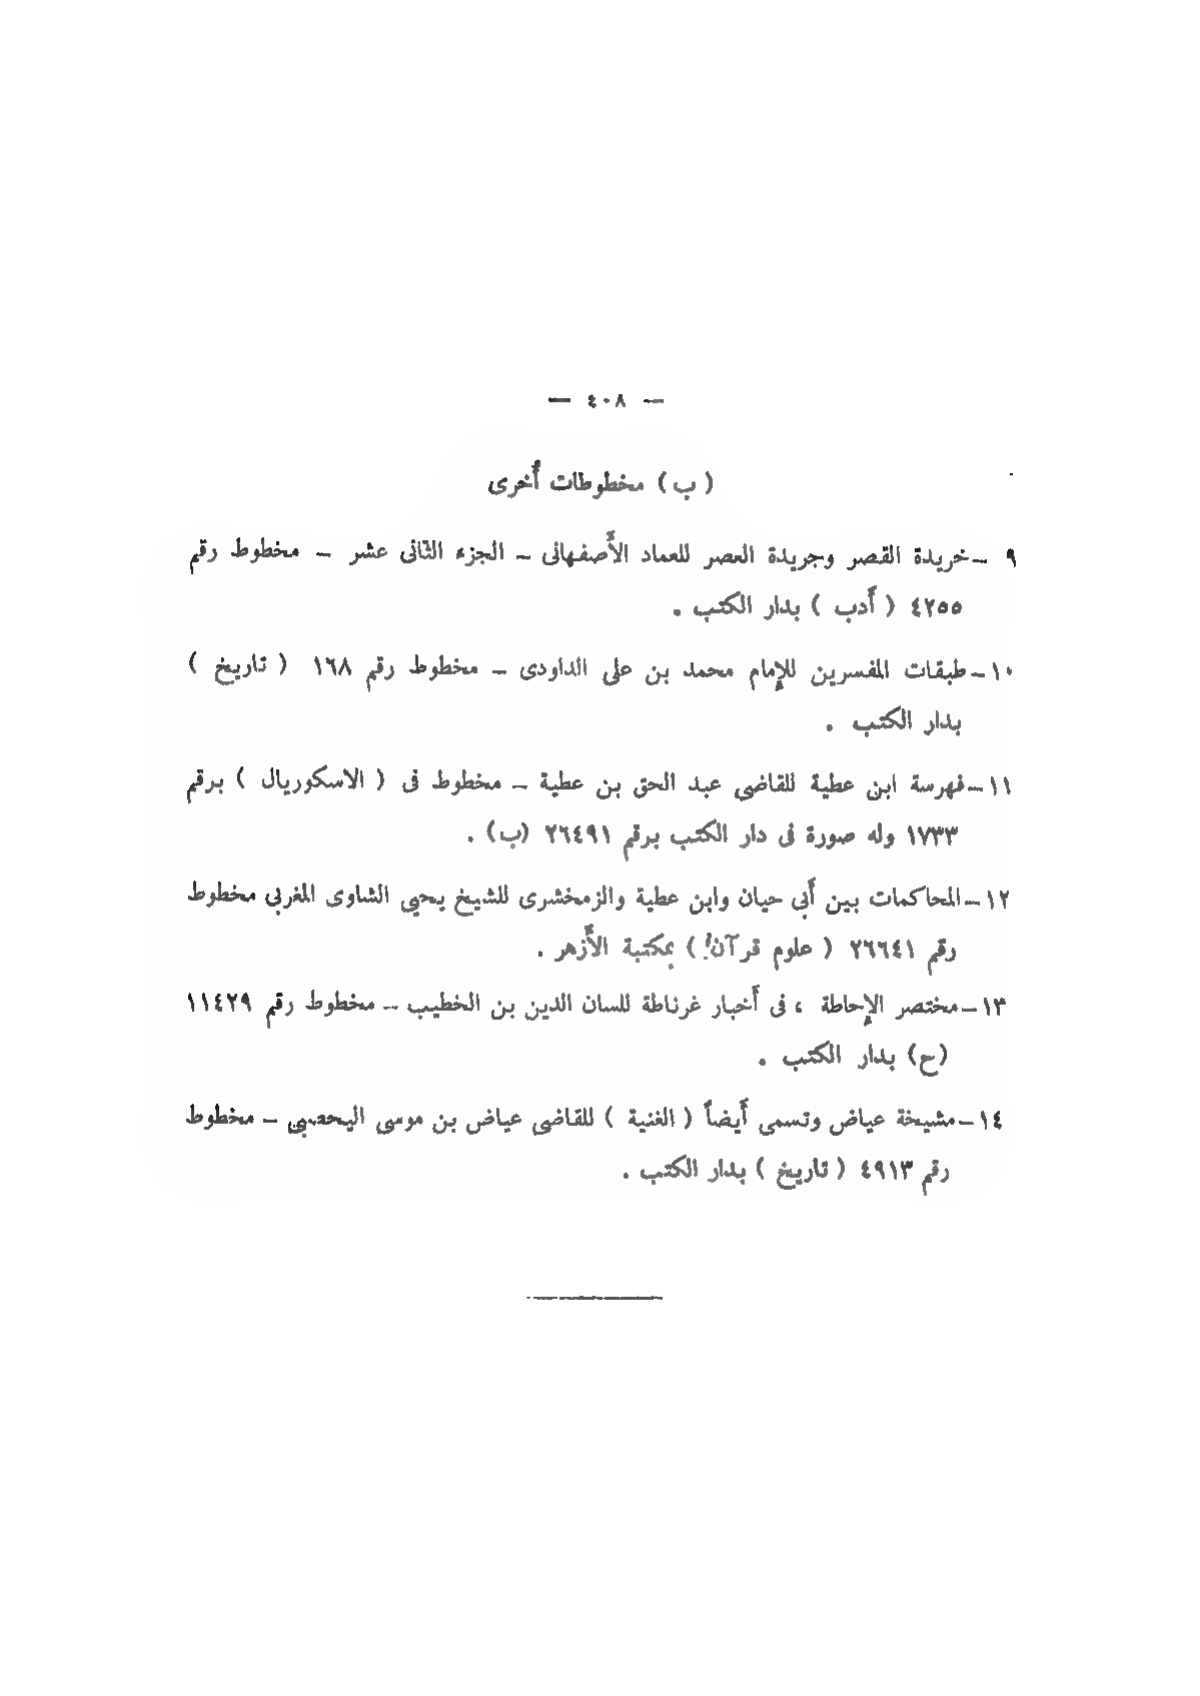 — ٤٠٨ —
( ب ) مخطوطات أُخرى
٩ – خريدة القصر وجريدة العصر للعماد الأَصفهانى – الجزء الثانى عشر – مخطوط رقم
٤٢٥٥ ( أَدب ) بدار الكتب .
١٠ – طبقات المفسرين للإمام محمد بن على الداودى – مخطوط رقم ١٦٨ ( تاريخ )
بدار الكتب .
١١ – فهرسة ابن عطية للقاضي عبد الحق بن عطية – مخطوط فى ( الاسكوريال ) برقم
١٧٣٣ وله صورة فى دار الكتب برقم ٢٦٤٩١ (ب) .
١٢ – المحاكمات بين أَبي حيان وابن عطية والزمخشرى للشيخ يحيي الشاوى المغربي مخطوط
رقم ٢٦٦٤١ ( علوم قرآن ) بمكتبة الأَزهر .
١٣ – مختصر الإحاطة ، فى أَخبار غرناطة للسان الدين بن الخطيب – مخطوط رقم ١١٤٢٩
(ح) بدار الكتب .
١٤ – مشيخة عياض وتسمى أَيضاً ( الغنية ) للقاضي عياض بن موسى اليحصبي – مخطوط
رقم ٤٩١٣ ( تاريخ ) بدار الكتب .